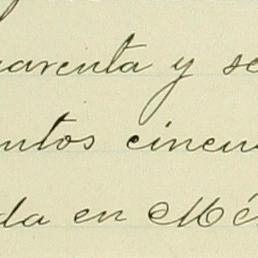 uarenta y se
ntos cincu
da en Mé